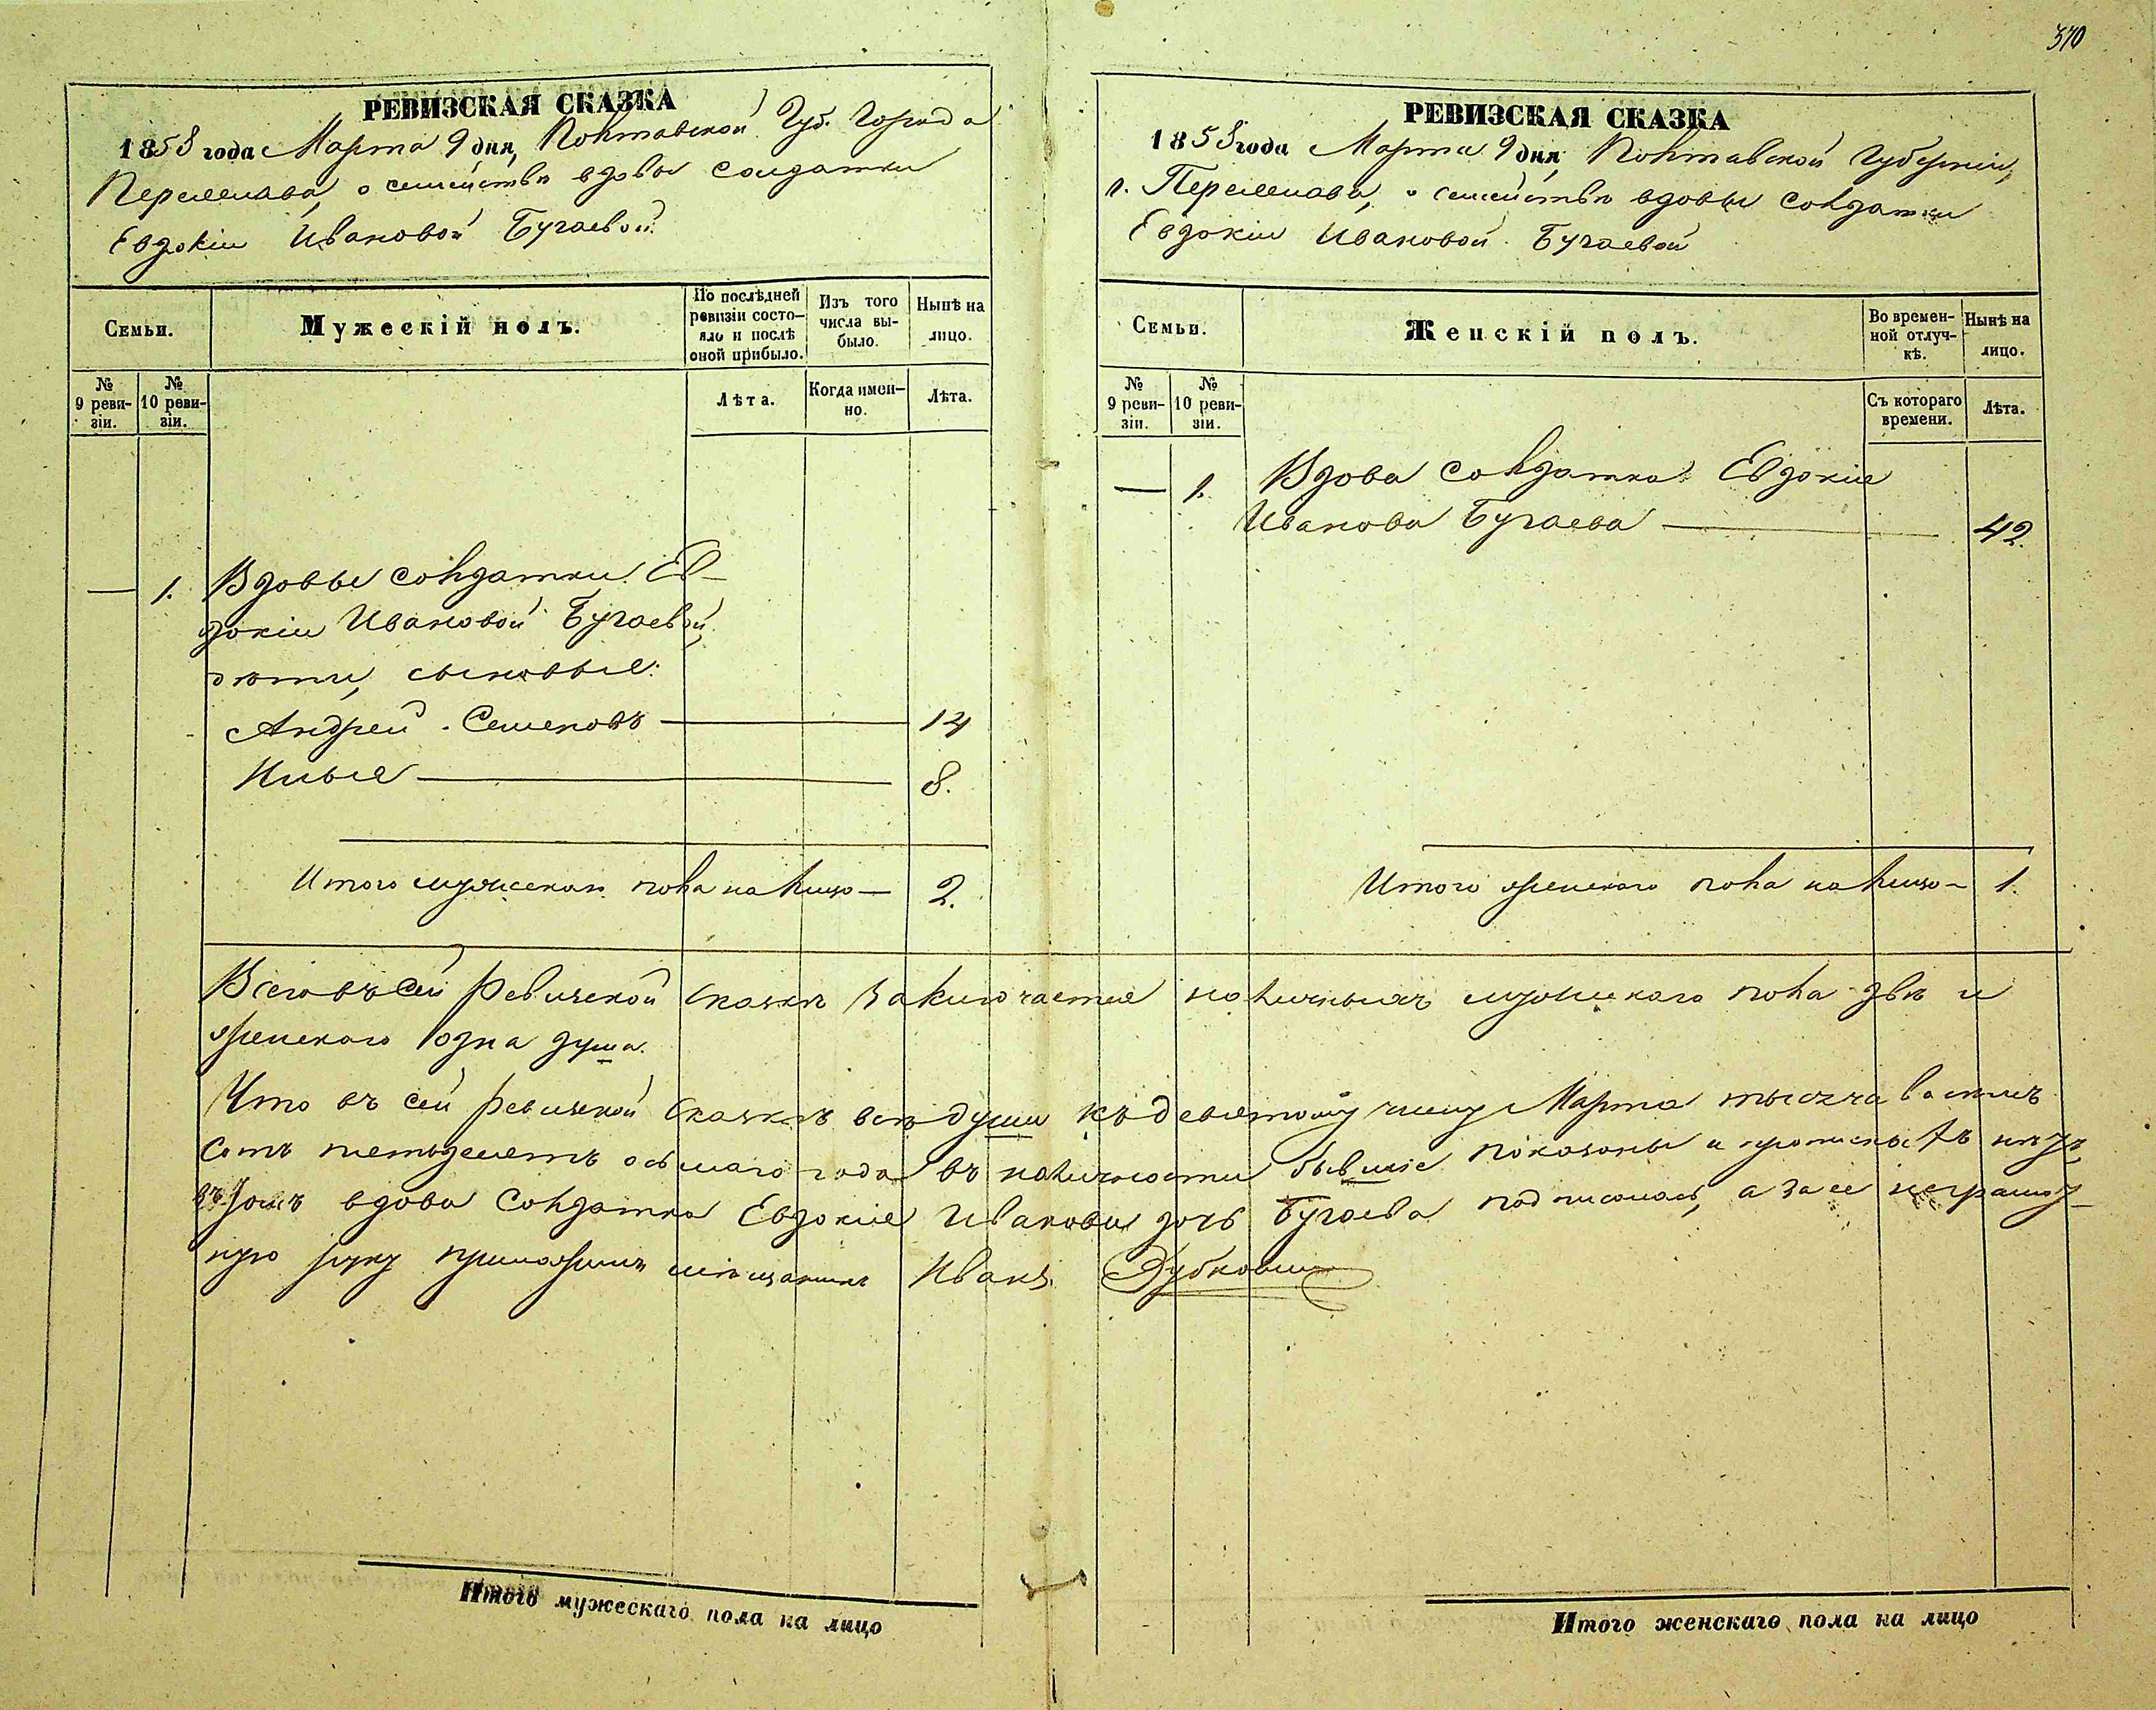 370
РЕВИЗСКАЯ СКАЗКА
1858 года Марта 9 дня, Полтавской Губ. Города
Переяслава, о семействѣ вдовы солдатки
Евдокіи Ивановой Бугаевой.
Семьи.
Мужескій полъ.
По послѣдней ревизіи состояло и послѣ оной прибыло.
Изъ того числа выбыло.
Нынѣ на лицо.
№ 9 ревизіи.
№ 10 ревизіи.
Лѣта.
Когда именно.
Лѣта.
— 1. Вдовы солдатки Ев-
докіи Ивановой Бугаевой,
дѣти, сыновья:
Андрей Семеновъ — 14
Илья — 8.
Итого мужескаго пола на лицо — 2.
РЕВИЗСКАЯ СКАЗКА
1858 года Марта 9 дня, Полтавской Губерніи,
г. Переяслава, о семействѣ вдовы солдатки
Евдокіи Ивановой Бугаевой
Семьи.
Женскій полъ.
Во временной отлучкѣ.
Нынѣ на лицо.
№ 9 ревизіи.
№ 10 ревизіи.
Съ котораго времени.
Лѣта.
— 1. Вдова солдатка Евдокія
Иванова Бугаева — 42.
Итого женскаго пола на лицо — 1.
Всего въ сей ревизской сказкѣ заключается наличныхъ мужескаго пола двѣ и
женскаго одна душа.
Что въ сей ревизской сказкѣ всѣ души къ девятому числу Марта тысяча восемь
сотъ пятьдесятъ осьмаго года въ наличности бывшіе показаны и прописныхъ нѣтъ,
въ томъ вдова солдатка Евдокія Иванова дочь Бугаева подписалась, а за ее неграмот-
ную руку приложилъ мѣщанинъ Иванъ
Итого мужескаго пола на лицо
Итого женскаго пола на лицо